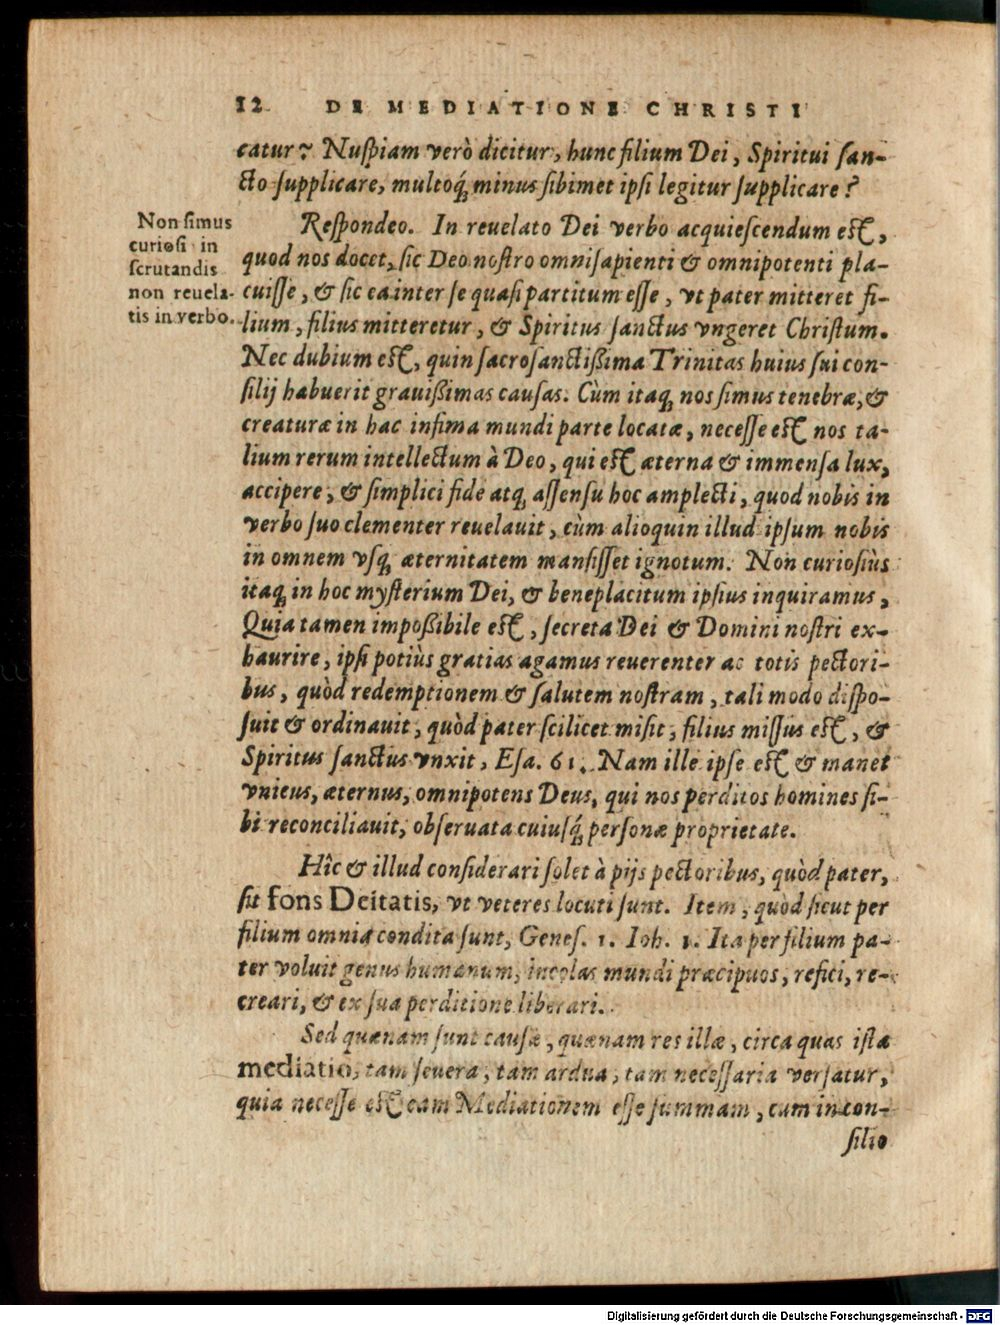 12 DE MEDIATIONE CHRISTI
catur? Nuſpiam verò dicitur, hunc filium Dei, Spiritui ſan-
cto ſupplicare, multoq́ꝫ minus ſibimet ipſi legitur ſupplicare?
Non ſimus
curioſi in
ſcrutandis
non reuela-
tis in verbo.
Reſpondeo. In reuelato Dei verbo acquieſcendum eſt,
quod nos docet, ſic Deo noſtro omniſapienti & omnipotenti pla-
cuiſſe, & ſic ea inter ſe quaſi partitum eſſe, vt pater mitteret fi-
lium, filius mitteretur, & Spiritus ſanctus vngeret Chriſtum.
Nec dubium eſt, quin ſacroſanctißima Trinitas huius ſui con-
ſilij habuerit grauißimas cauſas. Cùm itaqꝫ nos ſimus tenebræ, &
creaturæ in hac infima mundi parte locatæ, neceſſe eſt nos ta-
lium rerum intellectum à Deo, qui eſt æterna & immenſa lux,
accipere, & ſimplici fide atqꝫ aſſenſu hoc amplecti, quod nobis in
verbo ſuo clementer reuelauit, cùm alioquin illud ipſum nobis
in omnem vſqꝫ æternitatem manſiſſet ignotum. Non curioſiùs
itaqꝫ in hoc myſterium Dei, & beneplacitum ipſius inquiramus,
Quia tamen impoßibile eſt, ſecreta Dei & Domini noſtri ex-
haurire, ipſi potiùs gratias agamus reuerenter ac totis pectori-
bus, quòd redemptionem & ſalutem noſtram, tali modo diſpo-
ſuit & ordinauit, quòd pater ſcilicet miſit, filius miſſus eſt, &
Spiritus ſanctus vnxit, Eſa. 61. Nam ille ipſe eſt & manet
vnicus, æternus, omnipotens Deus, qui nos perditos homines ſi-
bi reconciliauit, obſeruata cuiuſq́ꝫ perſonæ proprietate.
Hîc & illud conſiderari ſolet à pijs pectoribus, quòd pater,
ſit fons Deitatis, vt veteres locuti ſunt. Item, quòd ſicut per
filium omnia condita ſunt, Geneſ. 1. Ioh. 1. Ita per filium pa-
ter voluit genus humanum, incolas mundi præcipuos, refici, re-
creari, & ex ſua perditione liberari.
Sed quænam ſunt cauſæ, quænam res illæ, circa quas iſta
mediatio, tam ſeuera, tam ardua, tam neceſſaria verſatur,
quia neceſſe eſt eam Mediationem eſſe ſummam, cum in con-
ſilio
Digitalisierung gefördert durch die Deutsche Forschungsgemeinschaft - DFG